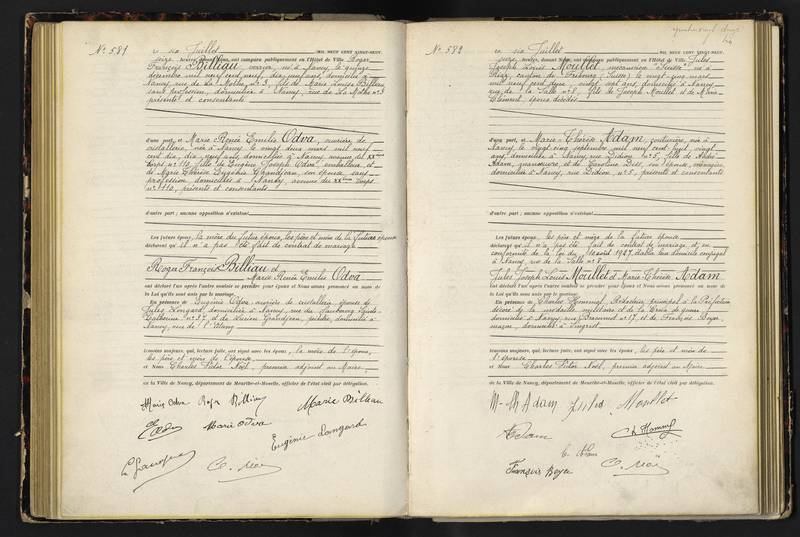 N° 581
Le six Juillet MIL NEUF CENT VINGT-NEUF,
seize heures, devant Nous, ont comparu publiquement en l'Hôtel de Ville Roger
François Billiau, né à Nancy, le quinze
décembre mil neuf cent neuf, dix neuf ans, domicilié à
Nancy, rue de La Mothe n° 3, fils de Marie Louise Billiau
sans profession, domiciliée à Nancy, rue de La Mothe n° 3
présente et consentante
d'une part, et Marie Renée Emilie Odva, ouvrière de
cristallerie, née à Nancy, le vingt deux mars mil neuf
cent dix, dix neuf ans, domiciliée à Nancy, avenue du XXème
Corps n° 110, fille de Eugène Joseph Odva, emballeur et
de Marie Thérèse Eugénie Grandjean, son épouse, sans
profession, domiciliés à Nancy, avenue du XXème Corps
n° 110, présents et consentants
d'autre part ; aucune opposition n'existant
Les futurs époux, la mère du futur époux, les père et mère de la future épouse
déclarent qu'il n'a pas été fait de contrat de mariage
Roger François Billiau et
Marie Renée Emilie Odva
ont déclaré l'un après l'autre vouloir se prendre pour époux et Nous avons prononcé au nom de
la Loi qu'ils sont unis par le mariage.
En présence de Eugénie Odva, ouvrière de cristallerie, épouse de
Jules Longard, domiciliée à Nancy, rue du Faubourg Sainte-
Catherine et de Lucien Grandjean, peintre, domicilié à
Nancy, rue de l'Etang
témoins majeurs, qui, lecture faite, ont signé avec les époux, la mère de l'époux,
les père et mère de l'épouse
et Nous Charles Victor Noël, premier adjoint au Maire,
de la Ville de Nancy, département de Meurthe-et-Moselle, officier de l'état civil par délégation.
Marie Odva Roger Billiau Marie Billiau
E. Odva Marie Odva
Eugénie Longard
N° 582
Le six Juillet MIL NEUF CENT VINGT-NEUF,
seize heures, devant Nous, ont comparu publiquement en l'Hôtel de Ville Jules
Joseph Louis Moullet, mécanicien "Suisse", né à
canton de Fribourg (Suisse), le vingt cinq mars
mil neuf cent, domicilié à Nancy
rue de la Salle n° 8, fils de Joseph Moullet et de Marie
époux décédés
d'une part, et Marie-Thérèse Adam, couturière, née à
Nancy, le vingt cinq septembre mil neuf cent huit, vingt
ans, domiciliée à Nancy, rue Didion n° 5, fille de André
Adam, manoeuvre et de Caroline son épouse, ménagère,
domiciliés à Nancy, rue Didion n° 5, présents et consentants
d'autre part ; aucune opposition n'existant
Les futurs époux, les père et mère de la future épouse
déclarent qu'il n'a pas été fait de contrat de mariage et, en
conformité de la loi du 10 août 1927, établir leur domicile conjugal
à Nancy, rue de la Salle n° 8
Jules Joseph Louis Moullet et Marie-Thérèse Adam
ont déclaré l'un après l'autre vouloir se prendre pour époux et Nous avons prononcé au nom de
la Loi qu'ils sont unis par le mariage.
En présence de Charles Hommand, Rédacteur principal à la Préfecture
décoré de la médaille militaire et de la Croix de guerre
domicilié à Nancy, rue n° 17, et de François Boyer
maçon, domicilié à
témoins majeurs, qui, lecture faite, ont signé avec les époux, les père et mère de
l'épouse
et Nous Charles Victor Noël, premier adjoint au Maire
de la Ville de Nancy, département de Meurthe-et-Moselle, officier de l'état civil par délégation.
M-Th Adam Jules Moullet
Adam
François Boyer C. Noël